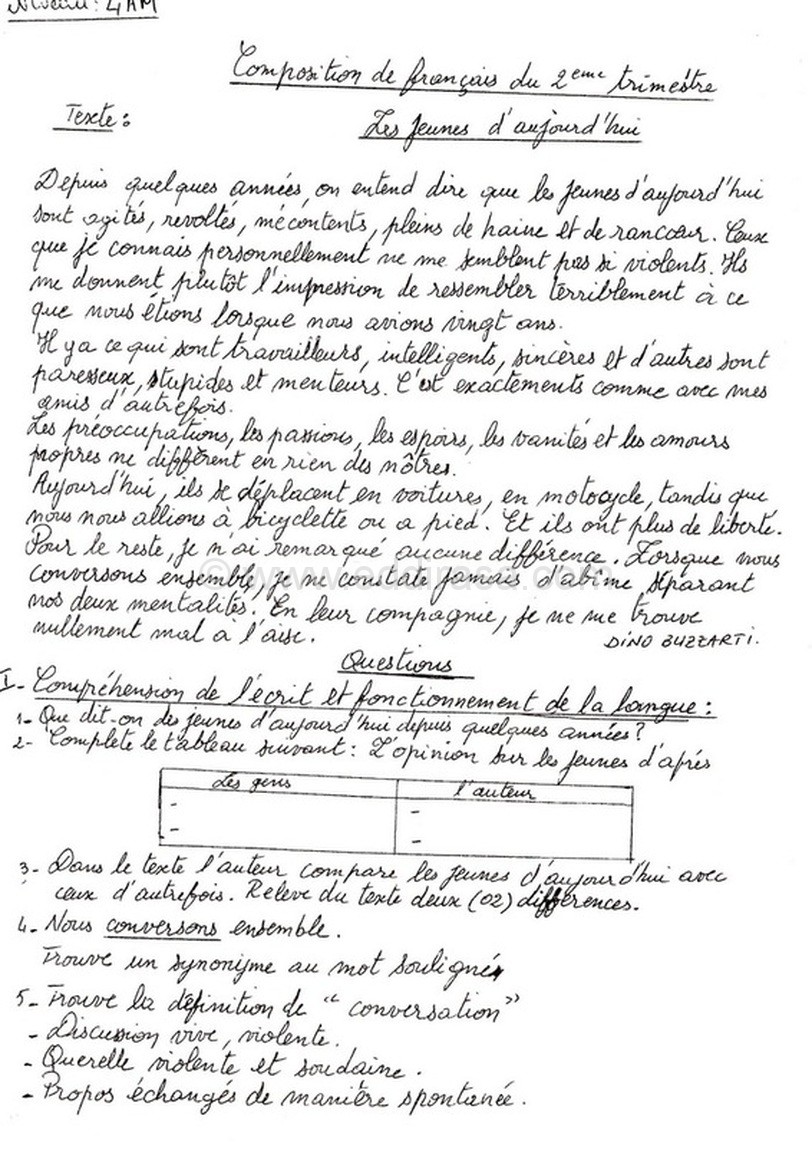 Niveau : 4AM
Composition de français du 2eme trimestre
Texte : Les jeunes d'aujourd'hui
Depuis quelques années, on entend dire que les jeunes d'aujourd'hui
sont agités, revoltés, mécontents, pleins de haine et de rancœur. Ceux
que je connais personnellement ne me semblent pas si violents. Ils
me donnent plutôt l'impression de ressembler terriblement à ce
que nous étions lorsque nous avions vingt ans.
Il y a ce qui sont travailleurs, intelligents, sincères et d'autres sont
paresseux, stupides et menteurs. C'est exactements comme avec mes
amis d'autrefois.
Les préoccupations, les passions, les espoirs, les vanités et les amours
propres ne diffèrent en rien des nôtres.
Aujourd'hui, ils se déplacent en voitures, en motocycle, tandis que
nous nous allions à bicyclette ou a pied. Et ils ont plus de liberté.
Pour le reste, je n'ai remarqué aucune différence. Lorsque nous
conversons ensemble, je ne constate jamais d'abîme séparant
nos deux mentalités. En leur compagnie, je ne me trouve
nullement mal à l'aise. DINO BUZZARTI.
©www.eddirasa.com
Questions
I- Compréhension de l'écrit et fonctionnement de la langue :
1- Que dit-on des jeunes d'aujourd'hui depuis quelques années ?
2- Complète le tableau suivant : L'opinion sur les jeunes d'après
Les gens l'auteur
- -
- -
3- Dans le texte l'auteur compare les jeunes d'aujourd'hui avec
ceux d'autrefois. Relève du texte deux (02) différences.
4- Nous conversons ensemble.
Trouve un synonyme au mot souligné
5- Trouve la définition de "conversation"
- Discussion vive, violente.
- Querelle violente et soudaine.
- Propos échangés de manière spontanée.